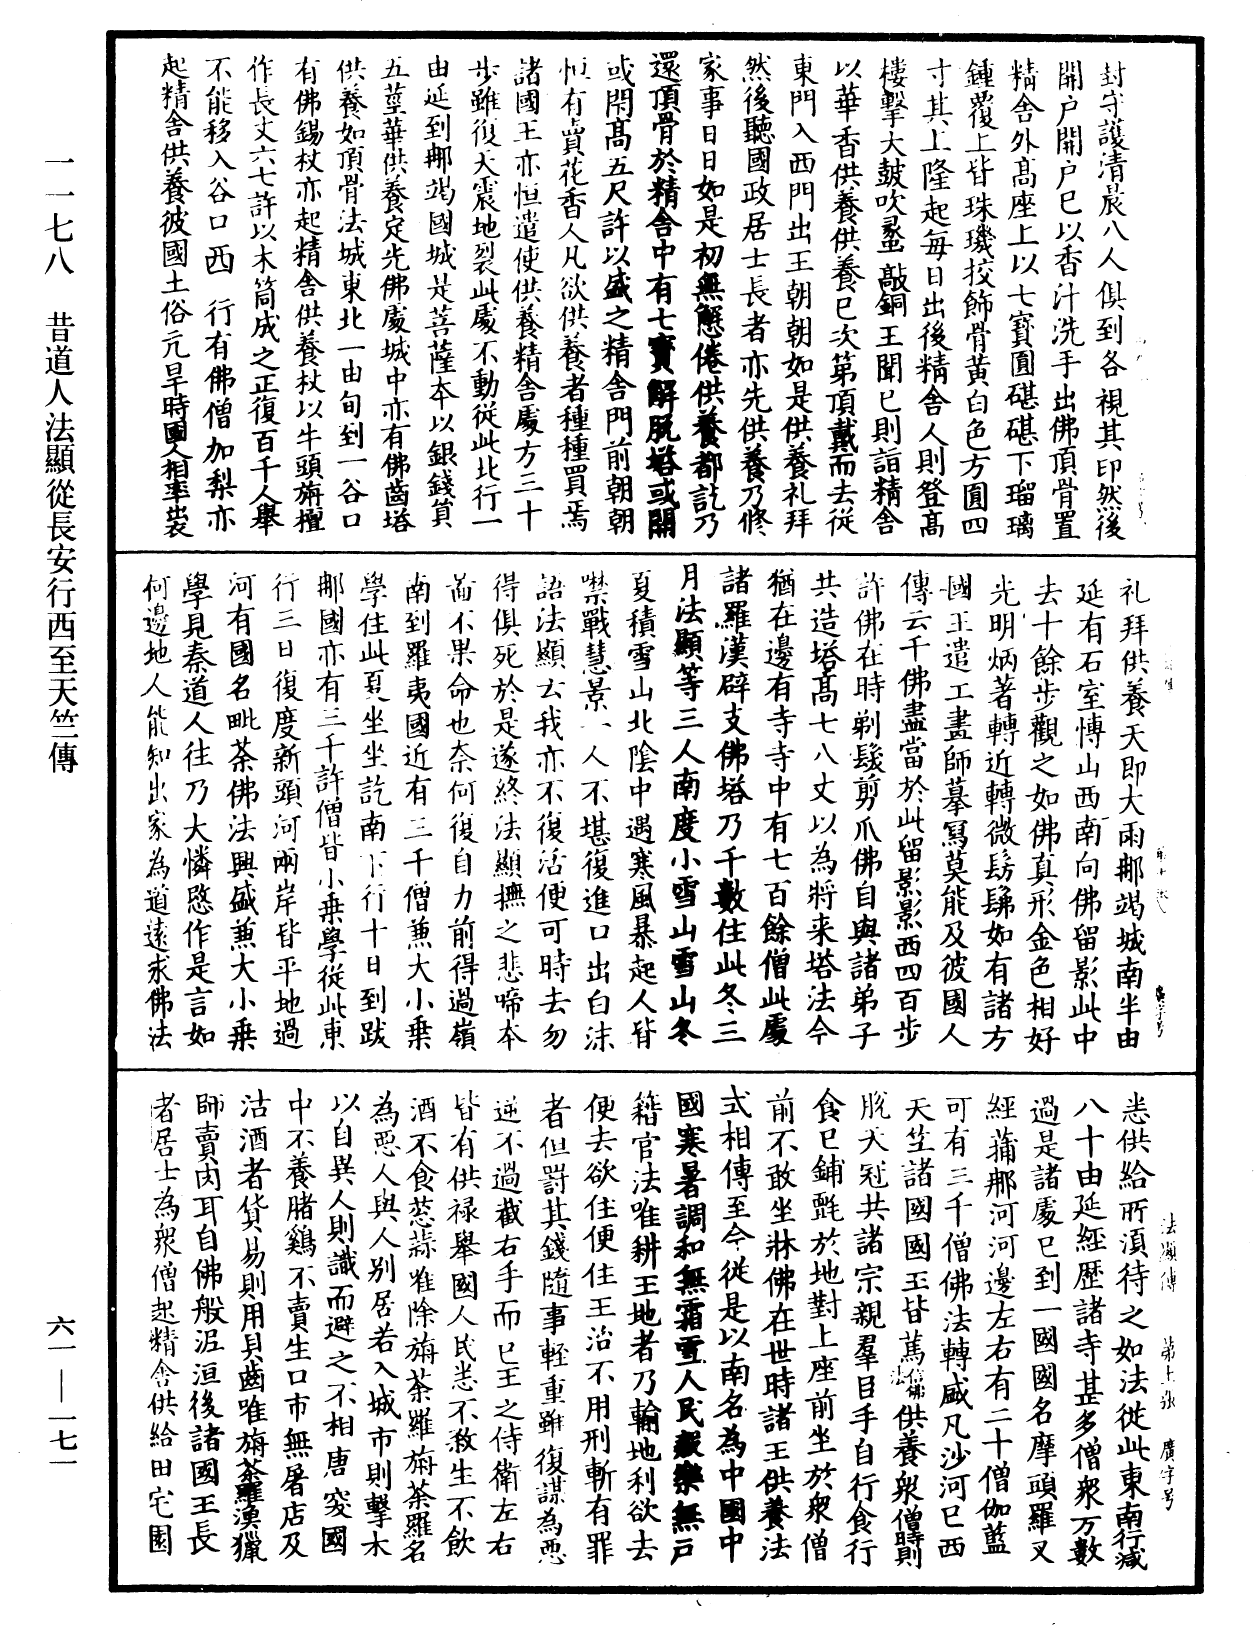 封守護清晨八人俱到各視其印然後
開户開户巳以香汁洗手出佛頂骨置
精舍外髙座上以七寳圓碪碪下瑠璃
鍾覆上皆珠璣挍飾骨黄白色方圓四
寸其上隆起每日出後精舍人則登髙
樓擊大鼓吹蠡敲銅王聞巳則詣精舍
以華香供養供養巳次第頂戴而去從
東門入西門出王朝朝如是供養礼拜
然後聽國政居士長者亦先供養乃修
家事日日如是初無懈倦供養都訖乃
還頂骨於精舍中有七寳解脱塔或開
或閇髙五尺許以盛之精舍門前朝朝
恒有賣花香人凡欲供養者種種買焉
諸國王亦恒遣使供養精舍處方三十
步雖復天震地裂此處不動從此北行一
由延到郍竭國城是菩薩本以銀錢貿
五莖華供養定光佛處城中亦有佛齒塔
供養如頂骨法城東北一由旬到一谷口
有佛錫杖亦起精舍供養杖以牛頭旃檀
作長丈六七許以木筒成之正復百千人舉
不能移入谷口西行有佛僧加梨亦
起精舍供養彼國土俗亢旱時國人相率出衣
礼拜供養天即大雨郍竭城南半由
延有石室愽山西南向佛留影此中
去十餘步觀之如佛真形金色相好
光明炳著轉近轉微髣髴如有諸方
國王遣工畫師摹寫莫能及彼國人
傳云千佛盡當於此留影影西四百步
許佛在時剃髮剪爪佛自與諸弟子
共造塔髙七八丈以為將來塔法今
猶在邊有寺寺中有七百餘僧此處
諸羅漢辟支佛塔乃千數住此冬三
月法顯等三人南度小雪山雪山冬
夏積雪山北陰中遇寒風暴起人皆
噤戰慧景一人不堪復進口出白沫
語法顯云我亦不復活便可時去勿
得俱死於是遂終法顯撫之悲啼本
啚不果命也奈何復自力前得過嶺
南到羅夷國近有三千僧兼大小乗
學住此夏坐坐訖南下行十日到跋
郍國亦有三千許僧皆小乗學從此東
行三日復度新頭河兩岸皆平地過
河有國名毗荼佛法興盛兼大小乗
學見秦道人往乃大憐愍作是言如
何邊地人能知出家為道遠求佛法
悉供給所湏待之如法從此東南行減
八十由延經歷諸寺甚多僧衆万數
過是諸處巳到一國國名摩頭羅又
經蒲那河河邊左右有二十僧伽藍
可有三千僧佛法轉盛凡沙河巳西
天竺諸國國王皆篤信佛法供養衆僧時則
脱天冠共諸宗親羣臣手自行食行
食巳鋪氈於地對上座前坐於衆僧
前不敢坐牀佛在世時諸王供養法
式相傳至今從是以南名為中國中
國寒暑調和無霜雪人民殷樂無户
籍官法唯耕王地者乃輸地利欲去
便去欲住便住王治不用刑斬有罪
者但罸其錢隨事輕重雖復謀為惡
逆不過截右手而巳王之侍衛左右
皆有供禄舉國人民悉不煞生不飲
酒不食葱蒜唯除旃荼羅旃荼羅名
為惡人與人别居若入城市則擊木
以自異人則識而避之不相唐突國
中不養豬雞不賣生口市無屠店及
沽酒者貨易則用貝齒唯旃荼羅漁獵
師賣肉耳自佛般泥洹後諸國王長
者居士為衆僧起精舍供給田宅園
法顯傳 第上張 廣字号
一一七八 昔道人法顯從長安行西至天竺傳
六一—一七一